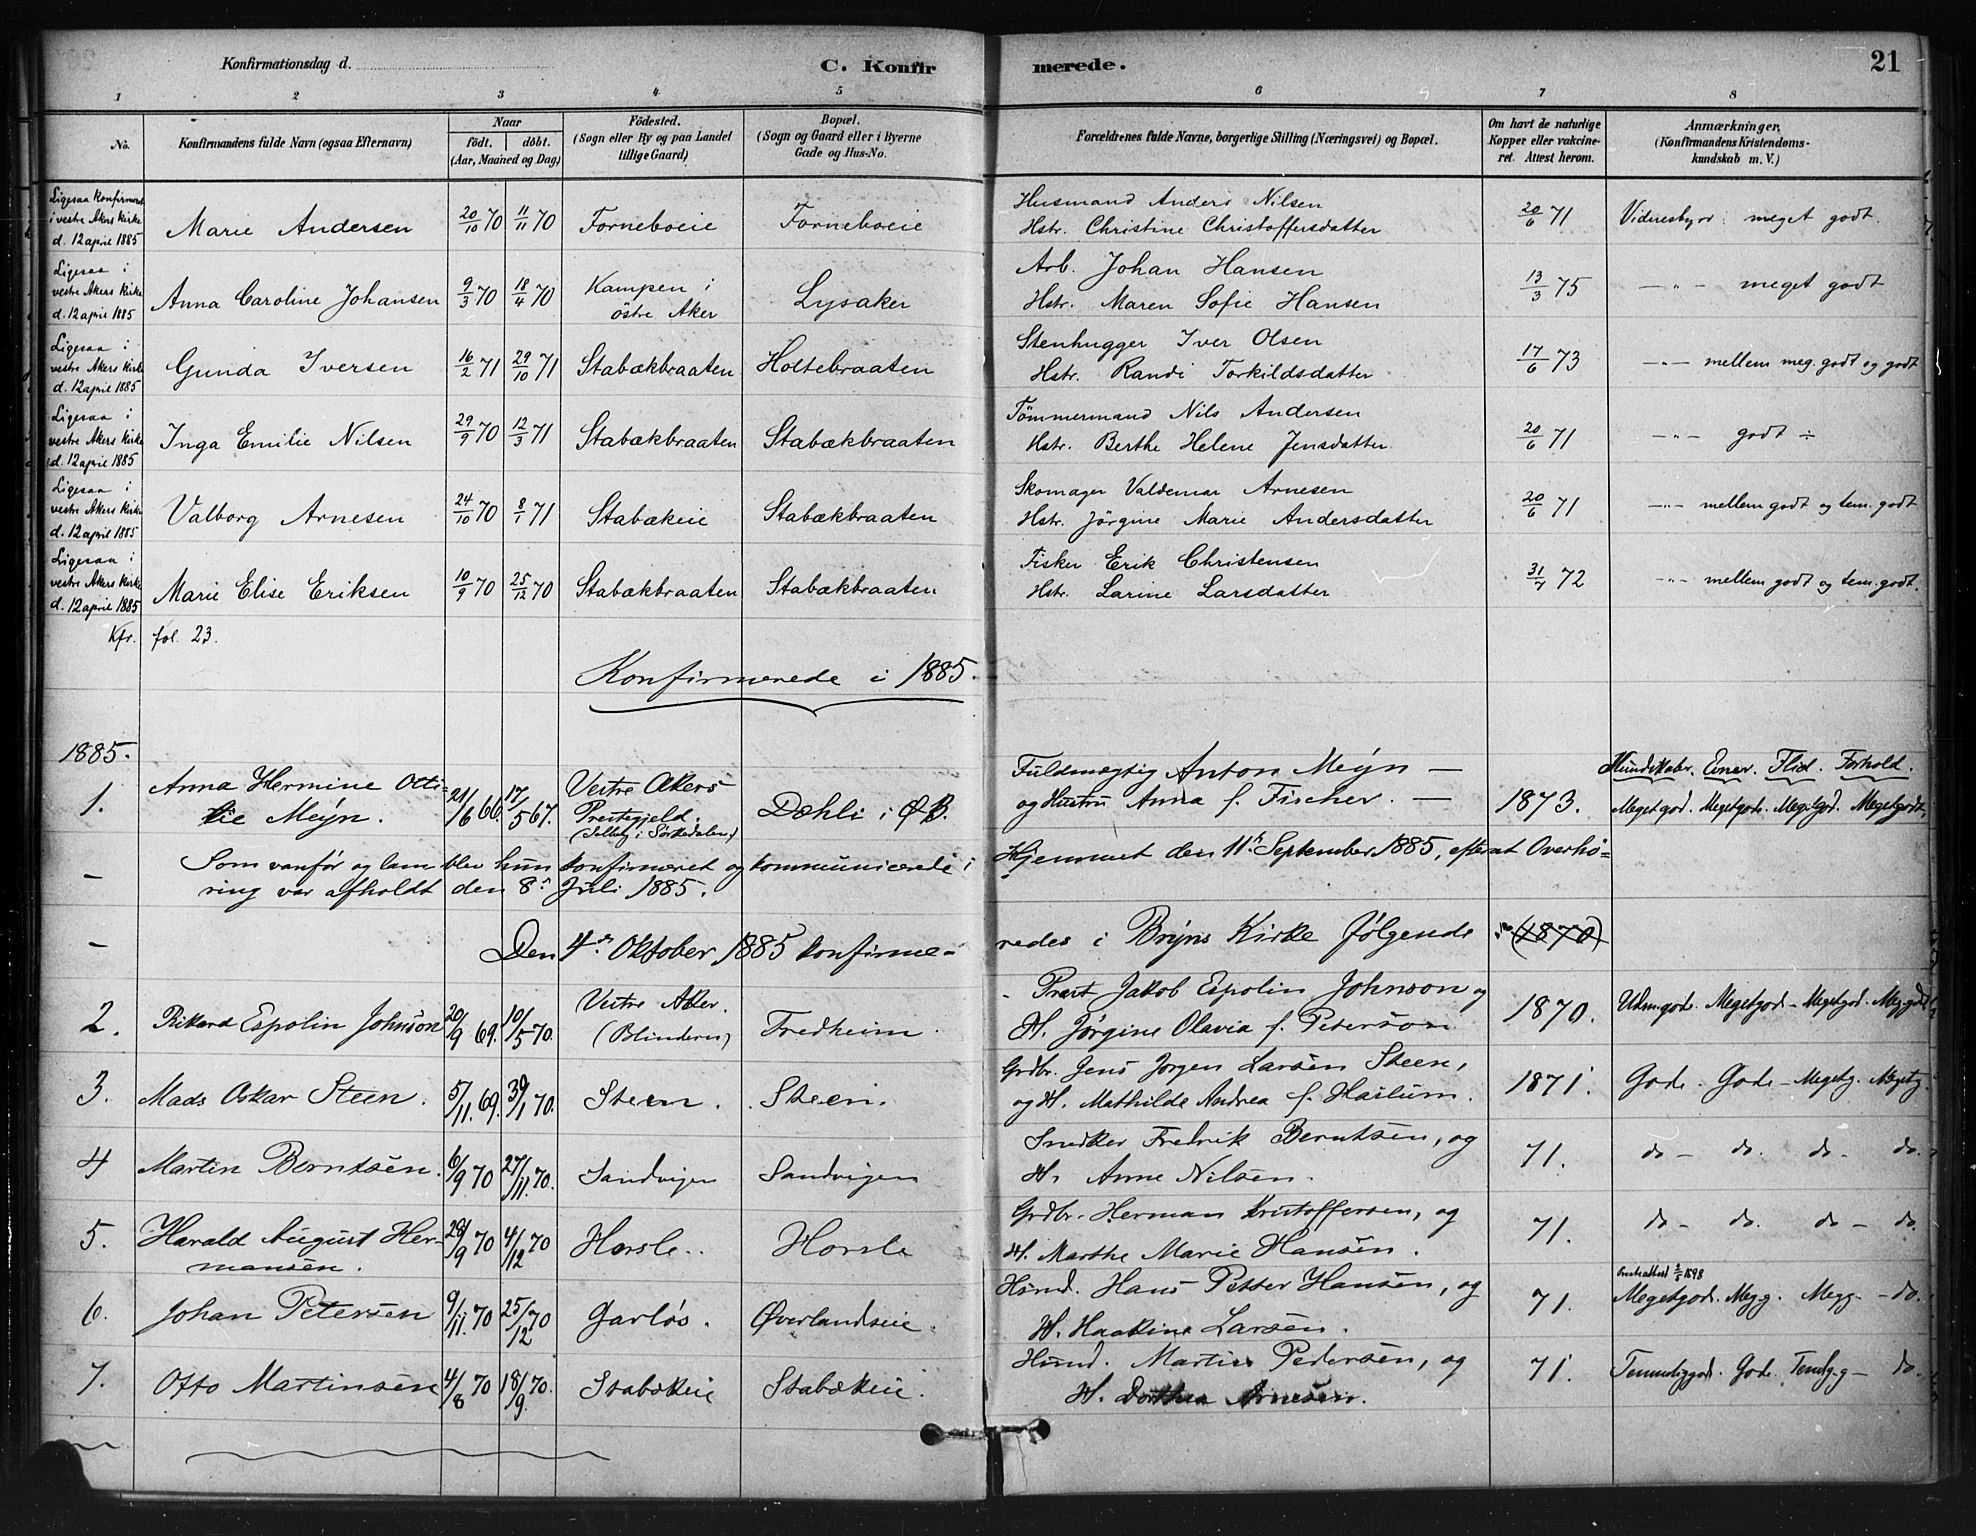 Konfirmationsdag d. C. Konfirmerede. 21
1 2 3 4 5 6 7 8
No. Konfirmandens fulde Navn (ogsaa Efternavn) Naar Fødested. Bopæl. Forældrenes fulde Navne, borgerlige Stilling (Næringsvei) og Bopæl. Om havt de naturlige Anmærkninger,
født. døbt. (Sogn eller By og paa Landet (Sogn og Gaard eller i Byerne Kopper eller vakcine- (Konfirmandens Kristendoms-
(Aar, Maaned og Dag) tillige Gaard) Gade og Hus-No. ret. Attest herom. kundskab m. V.)
Ligesaa konfirmeret Husmand Anders Nilsen
i vestre Akers Kirke Marie Andersen 20/10 70 11/11 70 Forneboeie Forneboeie 20/6 71 Vidnesbyrd: meget godt.
d. 12 april 1885 Hstr. Christine Christoffersdatter
Ligesaa i Arb. Johan Hansen
vestre Akers Kirke Anna Caroline Johansen 9/3 70 18/4 70 Kampen i Lysaker 13/3 75 — " — meget godt
d. 12 april 1885 östre Aker Hstr. Maren Sofie Hansen
Ligesaa i Stenhugger Iver Olsen
vestre Akers Kirke Gunda Iversen 16/2 71 29/10 71 Stabækbraaten Holtebraaten 17/6 73 — " — mellem meg. godt og godt
d. 12 april 1885 Hstr. Randi Torkildsdatter
Ligesaa i Tömmermand Nils Andersen
vestre Akers Kirke Inga Emilie Nilsen 29/9 70 12/3 71 Stabækbraaten Stabækbraaten 20/6 71 — " — godt ÷
d. 12 april 1885 Hstr. Berthe Helene Jensdatter
Ligesaa i Skomager Valdemar Arnesen
vestre Akers Kirke Valborg Arnesen 24/10 70 8/1 71 Stabækeie Stabækbraaten 20/6 71 — " — mellem godt og tem. godt
d. 12 april 1885 Hstr. Jörgine Marie Andersdatter
Ligesaa i Fisker Erik Christensen
vestre Akers Kirke Marie Elise Eriksen 10/9 70 25/12 70 Stabækbraaten Stabækbraaten 31/7 72 — " — mellem godt og tem. godt.
d. 12 april 1885 Hstr. Larine Larsdatter
Kfr. fol. 23.
Konfirmerede i 1885.
1885. Kundskaber. Evner. Flid. Forhold.
1. Anna Hermine Otti- 21/6 66. 17/5 67. Vestre Akers Dæhli i Ø B. Fuldmægtig Anton Meÿn — 1873. Megetgod. Megetgode. Megetgod. Megetgodt.
lie Meÿn. Prestegjeld. og Hustru Anna f. Fischer. —
– Som vanfør og lam blev hun konfirmeret og kommunicerede i Hjemmet den 11te September 1885, efterat Overhø-
ring var afholdt den 8de Juli 1885.
– Den 4de Oktober 1885 konfirme- redes i Brÿns Kirke følgende (1870)
2. Rikard Espolin Johnson 20/9 69. 10/5 70. Vestre Aker. Fredheim. - Prest Jakob Espolin Johnson og 1870. Udm.gode. Megetgod - Megetgod. Meg.godt
(Blindern) H. Jørgine Olavia f. Peterson
3. Mads Oskar Steen. 5/11. 69. 30/1 70. Steen. Steen. Grdbr. Jens Jørgen Larsen Steen, 1871. Gode. Gode - Megetg. Megetg.
og H. Mathilde Andrea f. Haslum.
4 Martin Berntsen. 6/9 70 27/11. 70. Sandvigen Sandvigen Snedker Fredrik Berntsen, og 71. do - do. do - do.
H. Anne Nilsen.
5. Harald August Her- 28/9 70 4/12 70 Horsle. Horsle Grdbr. Herman Kristoffersen, og 71. do - do. do - do.
mansen. H. Marthe Marie Hansen.
6. Johan Petersen 9/11. 70 25/12 70 Garløs. Øverlandseie. Husmd. Hans Petter Hansen, og 71. Megetgode. Meg g. Meg g. - do.
H. Haakine Larsen.
7. Otto Martinsen 4/8 70 18/9. 70. Stabækeie Stabækeie. Husmd. Martin Pedersen, og 71. Temmeliggod. Gode. Temlig g - do.
H. Dorthea Arnesen.